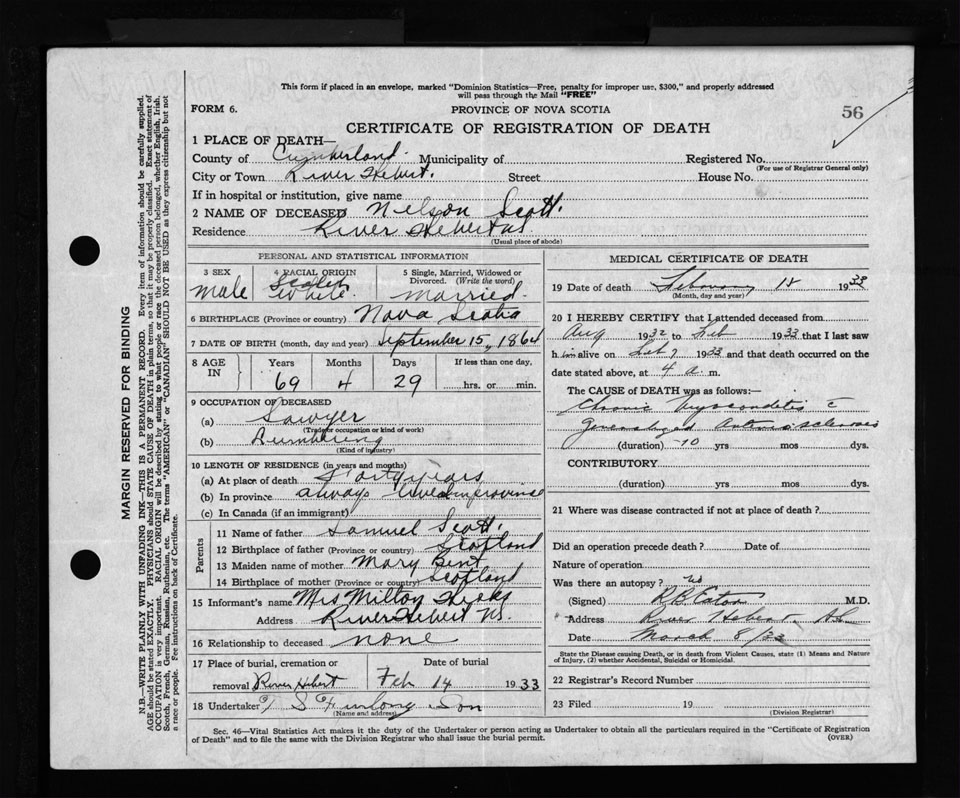 This form if placed in an envelope, marked "Dominion Statistics—Free, penalty for improper use, $300," and properly addressed
will pass through the Mail "FREE"
FORM 6.
PROVINCE OF NOVA SCOTIA
56
CERTIFICATE OF REGISTRATION OF DEATH
1 PLACE OF DEATH—
County of Cumberland. Municipality of Registered No.
(For use of Registrar General only)
City or Town River Hebert. Street House No.
If in hospital or institution, give name
2 NAME OF DECEASED Nelson Scott.
Residence River Hebert NS
(Usual place of abode)
MARGIN RESERVED FOR BINDING
N.B.—WRITE PLAINLY WITH UNFADING INK—THIS IS A PERMANENT RECORD. Every item of information should be carefully supplied.
AGE should be stated EXACTLY. PHYSICIANS should STATE CAUSE OF DEATH in plain terms, so that it may be properly classified. Exact statement of
OCCUPATION is very important. RACIAL ORIGIN will be described by stating to what people or race the deceased person belonged, whether English, Irish,
Scotch, French, German, Russian, Ruthenian, etc. The terms "AMERICAN" or "CANADIAN" SHOULD NOT BE USED as they express citizenship but not
a race or people. Fee instructions on back of Certificate.
PERSONAL AND STATISTICAL INFORMATION
3 SEX
male
4 RACIAL ORIGIN
Scotch
White.
5 Single, Married, Widowed or
Divorced. (Write the word)
married.
6 BIRTHPLACE (Province or country) Nova Scotia
7 DATE OF BIRTH (month, day and year) September 15, 1864
8 AGE IN
Years Months Days If less than one day,
69 4 29 hrs. or min.
9 OCCUPATION OF DECEASED
(a) Sawyer
(Trade or occupation or kind of work)
(b) Lumbering
(Kind of industry)
10 LENGTH OF RESIDENCE (in years and months)
(a) At place of death Forty years
(b) In province always lived in province
(c) In Canada (if an immigrant)
Parents
11 Name of father Samuel Scott.
12 Birthplace of father (Province or country) Scotland
13 Maiden name of mother Mary Bent
14 Birthplace of mother (Province or country) Scotland
15 Informant's name Mrs Milton Hicks
Address River Hebert NS.
16 Relationship to deceased none
17 Place of burial, cremation or Date of burial
removal River Hebert Feb 14 1933
18 Undertaker S Furlong Son
(Name and address)
MEDICAL CERTIFICATE OF DEATH
19 Date of death February 1933
(Month, day and year)
20 I HEREBY CERTIFY that I attended deceased from
Aug 1932 to Feb 1933 and that I last saw
him alive on Feb 7 1933 and that death occurred on the
date stated above, at 4 a. m.
The CAUSE OF DEATH was as follows:—
Chronic myocarditis c̄
generalized Arteriosclerosis
(duration) 10 yrs mos dys.
CONTRIBUTORY
(duration) yrs mos dys.
21 Where was disease contracted if not at place of death?
Did an operation precede death? Date of
Nature of operation
Was there an autopsy? no
(Signed) R B Eaton M.D.
Address River Hebert, N.S.
Date March 8/33
State the Disease causing Death, or in death from Violent Causes, state (1) Means and Nature
of Injury, (2) whether Accidental, Suicidal or Homicidal.
22 Registrar's Record Number
23 Filed 19
(Division Registrar)
Sec. 46—Vital Statistics Act makes it the duty of the Undertaker or person acting as Undertaker to obtain all the particulars required in the "Certificate of Registration
of Death" and to file the same with the Division Registrar who shall issue the burial permit. (OVER)